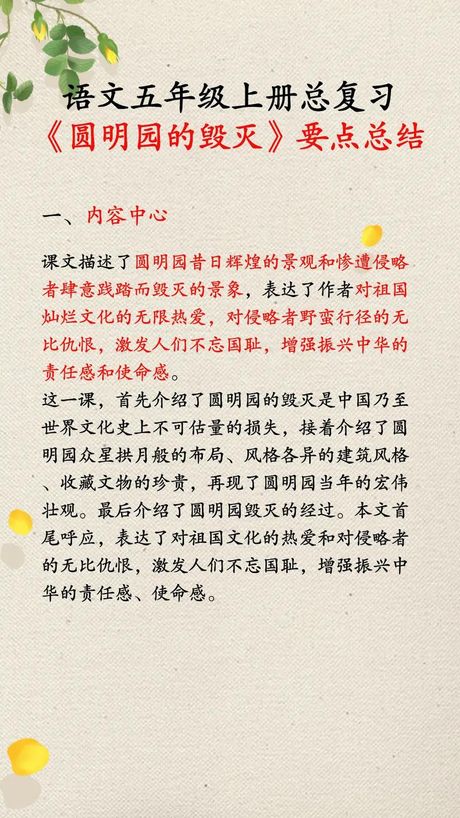 语文五年级上册总复习
《圆明园的毁灭》要点总结
一、内容中心
课文描述了圆明园昔日辉煌的景观和惨遭侵略
者肆意践踏而毁灭的景象，表达了作者对祖国
灿烂文化的无限热爱，对侵略者野蛮行径的无
比仇恨，激发人们不忘国耻，增强振兴中华的
责任感和使命感。
这一课，首先介绍了圆明园的毁灭是中国乃至
世界文化史上不可估量的损失，接着介绍了圆
明园众星拱月般的布局、风格各异的建筑风格
、收藏文物的珍贵，再现了圆明园当年的宏伟
壮观。最后介绍了圆明园毁灭的经过。本文首
尾呼应，表达了对祖国文化的热爱和对侵略者
的无比仇恨，激发人们不忘国耻，增强振兴中
华的责任感、使命感。